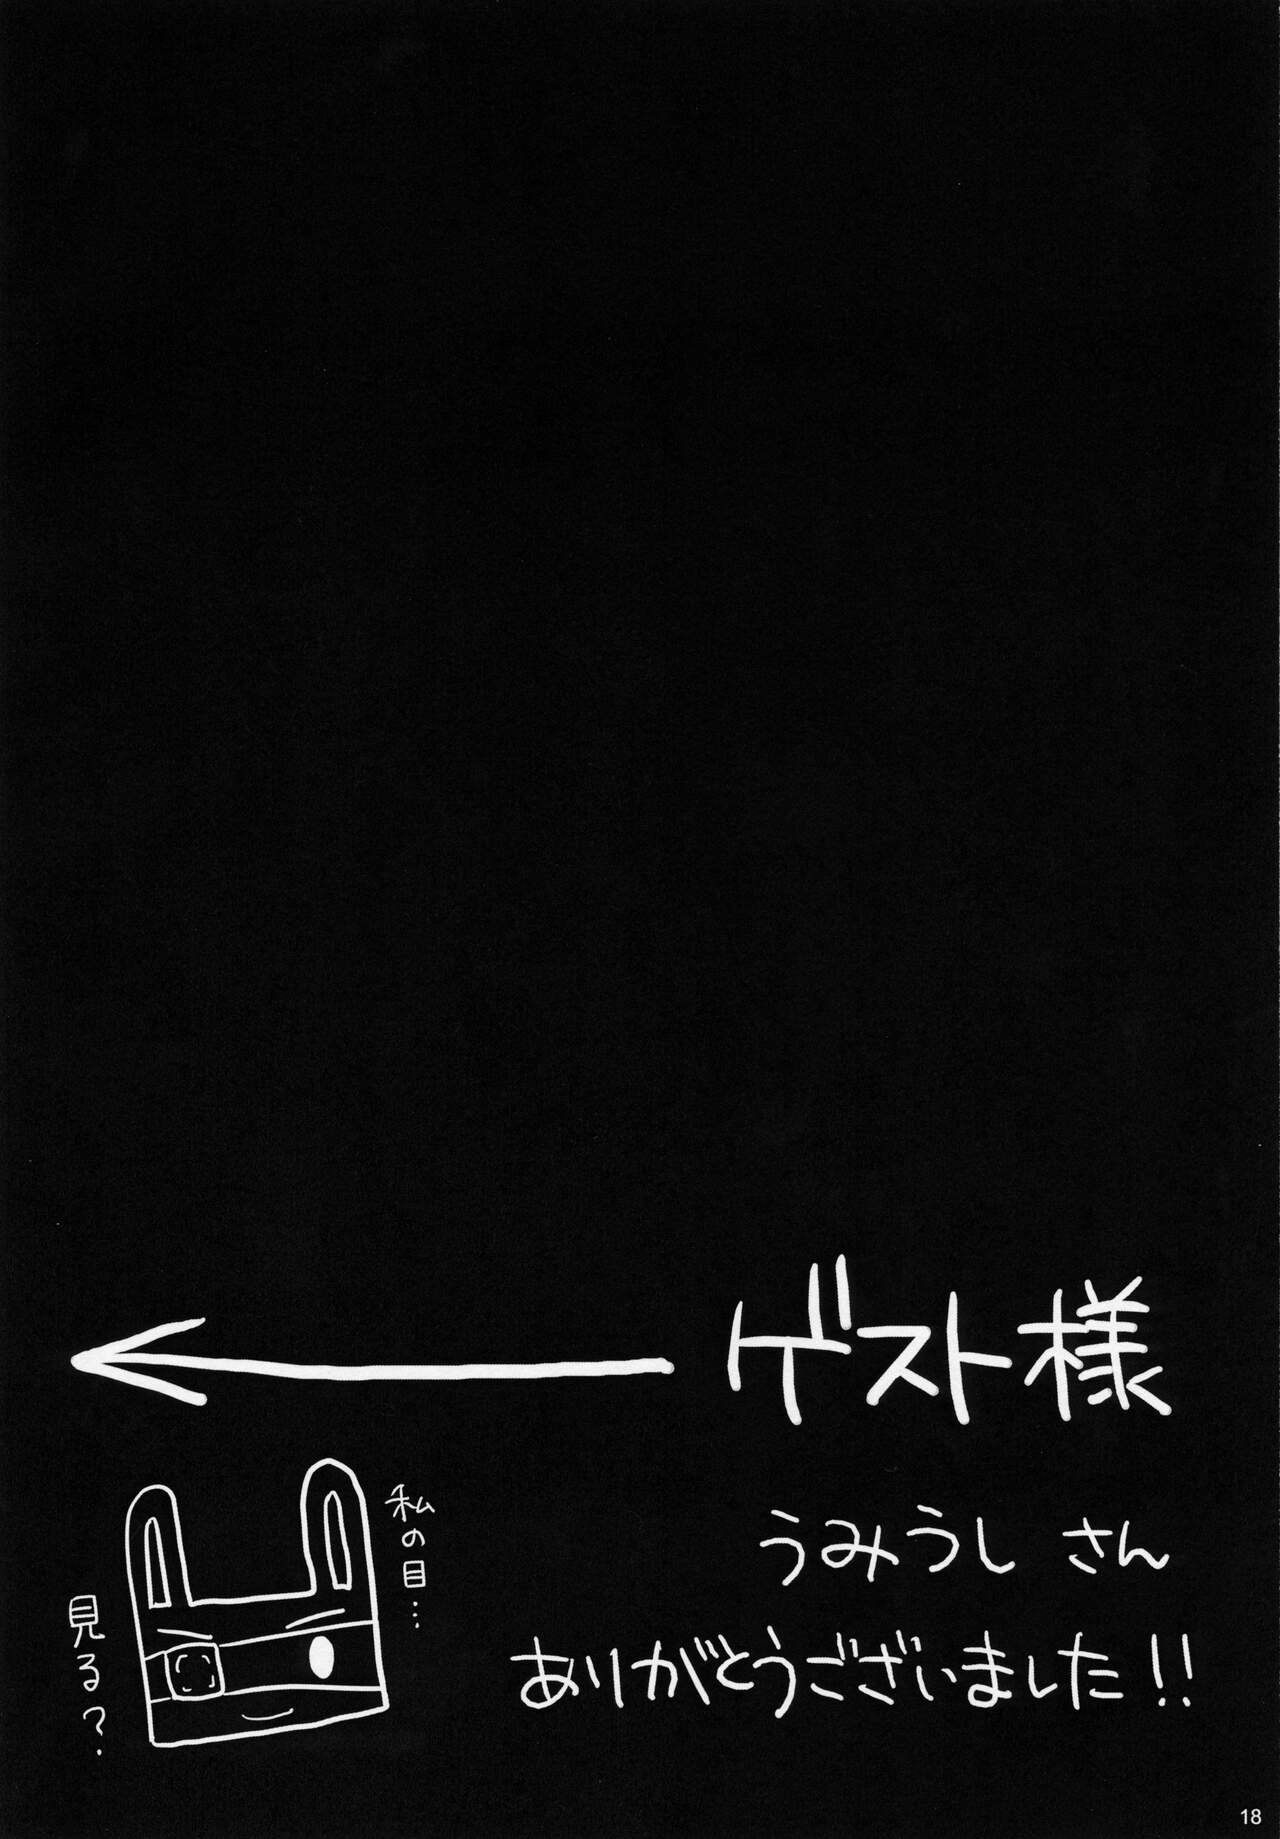 ゲスト様
うみうし さん
ありがとうございました!!
私の目…
見る?
18